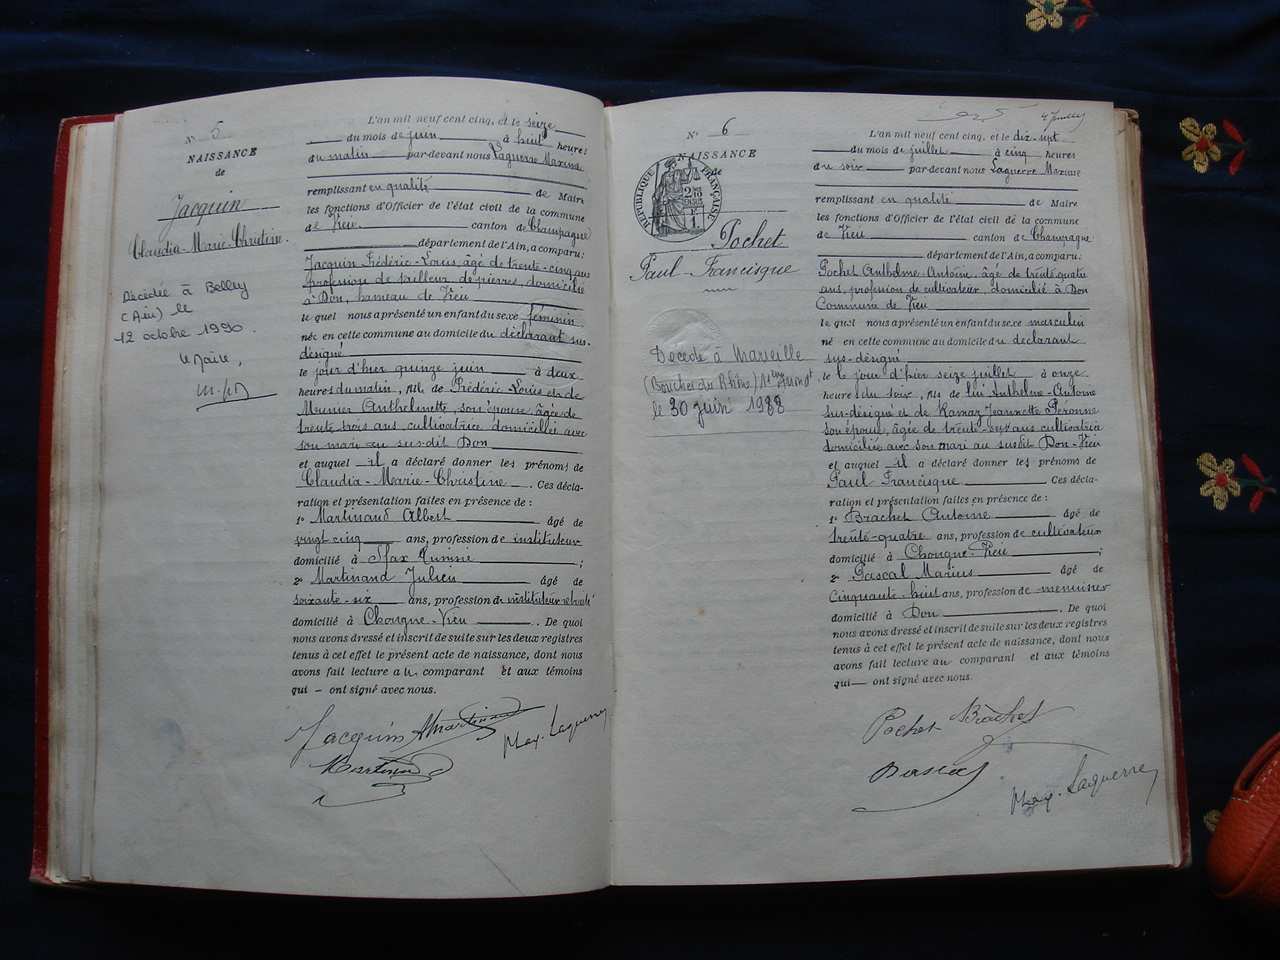 N° 5
NAISSANCE
de
Jacquin
Claudia-Marie-Christine.
Décédée à Belley
(Ain) le
12 octobre 1990.
Le Maire,
L'an mil neuf cent cinq, et le seize
du mois de juin à huit heures
du matin par-devant nous Laguerre Maxime
remplissant en qualité de Maire
les fonctions d'Officier de l'état civil de la commune
de Vieu canton de Champagne
département de l'Ain, a comparu:
Jacquin Frédéric-Louis, âgé de trente-cinq ans
profession de tailleur de pierres, domicilié
à Don, hameau de Vieu
lequel nous a présenté un enfant du sexe féminin
née en cette commune au domicile du déclarant sus-
désigné
le jour d'hier quinze juin à deux
heures du matin, fille de Frédéric-Louis et de
Meunier Anthelmette, son épouse, âgée de
trente trois ans cultivatrice domiciliée avec
son mari au sus-dit Don
et auquel il a déclaré donner les prénoms de
Claudia-Marie-Christine. Ces décla-
ration et présentation faites en présence de:
1° Martinand Albert âgé de
vingt cinq ans, profession de instituteur
domicilié à Sfax Tunisie;
2° Martinand Julien âgé de
soixante-six ans, profession de instituteur retraité
domicilié à Chongne-Vieu. De quoi
nous avons dressé et inscrit de suite sur les deux registres
tenus à cet effet le présent acte de naissance, dont nous
avons fait lecture au comparant et aux témoins
qui ont signé avec nous.
Jacquin AMartinand
Max. Laguerre
Martinand
N° 6
NAISSANCE
de
RÉPUBLIQUE FRANÇAISE
Pochet
Paul-Francisque
Décédé à Marseille
(Bouches du Rhône)
le 30 juin 1988
L'an mil neuf cent cinq, et le dix-sept
du mois de juillet à cinq heures
du soir par-devant nous Laguerre Maxime
remplissant en qualité de Maire
les fonctions d'Officier de l'état civil de la commune
de Vieu canton de Champagne
département de l'Ain, a comparu:
Pochet Anthelme-Antoine, âgé de trente quatre
ans, profession de cultivateur, domicilié à Don
Commune de Vieu
lequel nous a présenté un enfant du sexe masculin
né en cette commune au domicile du déclarant
sus-désigné
le jour d'hier seize juillet à onze
heures du soir, fils de lui Anthelme-Antoine
sus-désigné et de Ramaz Jeannette Péronne
son épouse, âgée de trente-six ans cultivatrice
domiciliée avec son mari au susdit Don-Vieu
et auquel il a déclaré donner les prénoms de
Paul Francisque Ces décla-
ration et présentation faites en présence de:
1° Brachet Antoine âgé de
trente-quatre ans, profession de cultivateur
domicilié à Chongne-Vieu;
2° Pascal Marius âgé de
Cinquante-huit ans, profession de menuisier
domicilié à Don. De quoi
nous avons dressé et inscrit de suite sur les deux registres
tenus à cet effet le présent acte de naissance, dont nous
avons fait lecture au comparant et aux témoins
qui ont signé avec nous.
Pochet Brachet
Pascal
Max. Laguerre